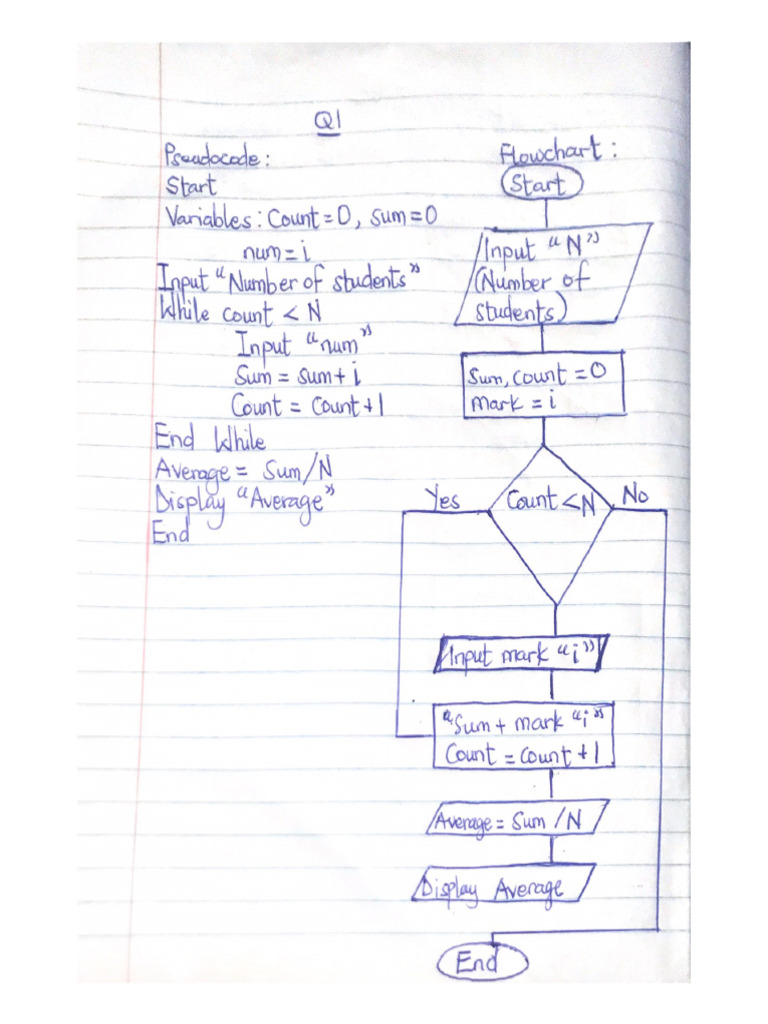 Q1
Pseudocode:
Start
Variables: Count = 0, sum = 0
num = i
Input "Number of students"
While count < N
Input "num"
Sum = sum + i
Count = Count + 1
End While
Average = Sum/N
Display "Average"
End
Flowchart:
Start
Input "N"
(Number of
students)
Sum, count = 0
mark = i
Count < N
Yes
No
Input mark "i"
"Sum + mark "i"
Count = count + 1
Average = Sum / N
Display Average
End